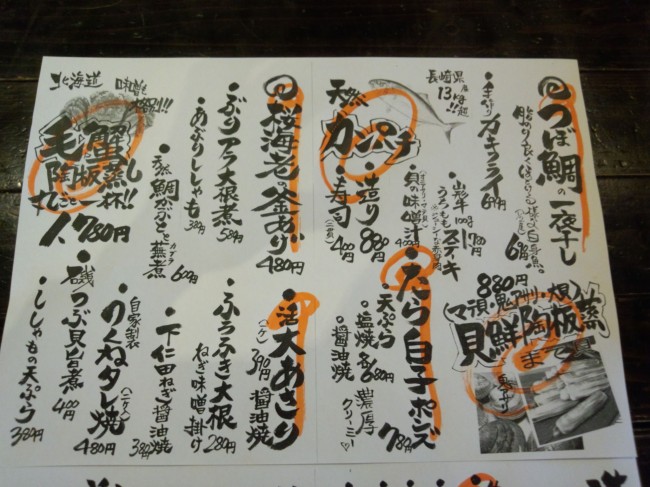 つぼ鯛の一夜干し
手作りカキフライ
山形牛100g
うちももステーキ
780円
長崎県産
13kg超!!
天然
カンパチ
造り 880円
寿司 400円
貝の味噌汁 400円
桜海老の釜あげ 480円
ぶりアラ大根煮 580円
あぶりししゃも 380円
天然鯛かぶとと蕪煮 600円
北海道
味噌も
毛蟹
陶板蒸し
丸ごと一杯!!
1,780円
880円
貝鮮陶板蒸
たら白子ポンズ 780円
天ぷら
塩焼
醤油焼
各680円
濃厚
クリーミー♡
活大あさり
醤油焼
390円
ふろふき大根
ねぎ味噌掛け
280円
下仁田ねぎ醤油焼 380円
自家製
つくねタレ焼
480円
磯つぶ貝旨煮 400円
ししゃもの天ぷら 380円